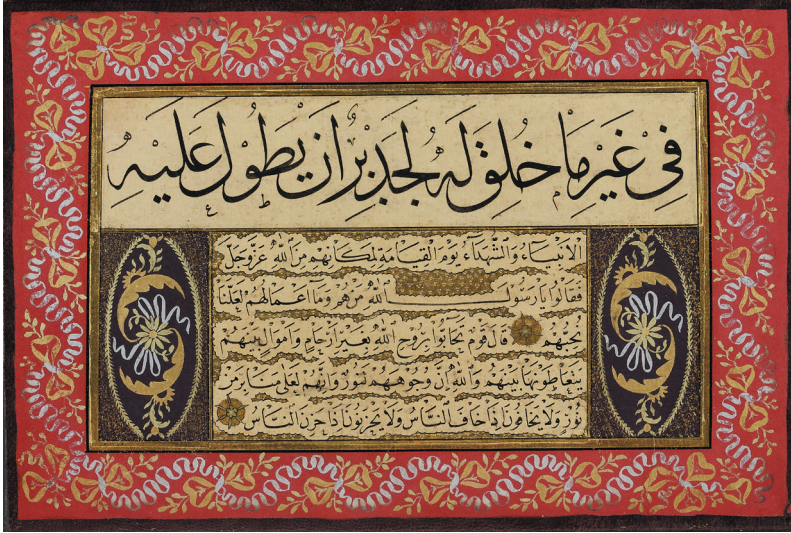 في غَيْرِ مَا خُلِقَ لَهُ لَجَدِيرٌ اَنْ يَطُولَ عَلَيْهِ
الْاَنْبِيَاءُ وَالشُّهَدَاءُ يَوْمَ الْقِيَامَةِ لِمَكَانِهِمْ مِنَ اللهِ عَزَّ وَجَلَّ
فَقَالُوا يَا رَسُولَ اللهِ مَنْ هُمْ وَمَا اَعْمَالُهُمْ لَعَلَّنَا
نُحِبُّهُمْ قَالَ قَوْمٌ تَحَابُّوا بِرُوحِ اللهِ بِغَيْرِ اَرْحَامٍ وَاَمْوَالٍ بَيْنَهُمْ
يَتَعَاطَوْنَهَا بَيْنَهُمْ وَاللهِ اِنَّ وُجُوهَهُمْ لَنُورٌ وَاِنَّهُمْ لَعَلَى مَنَابِرَ مِنْ
نُورٍ وَلَا يَخَافُونَ اِذَا خَافَ النَّاسُ وَلَا يَحْزَنُونَ اِذَا حَزِنَ النَّاسُ